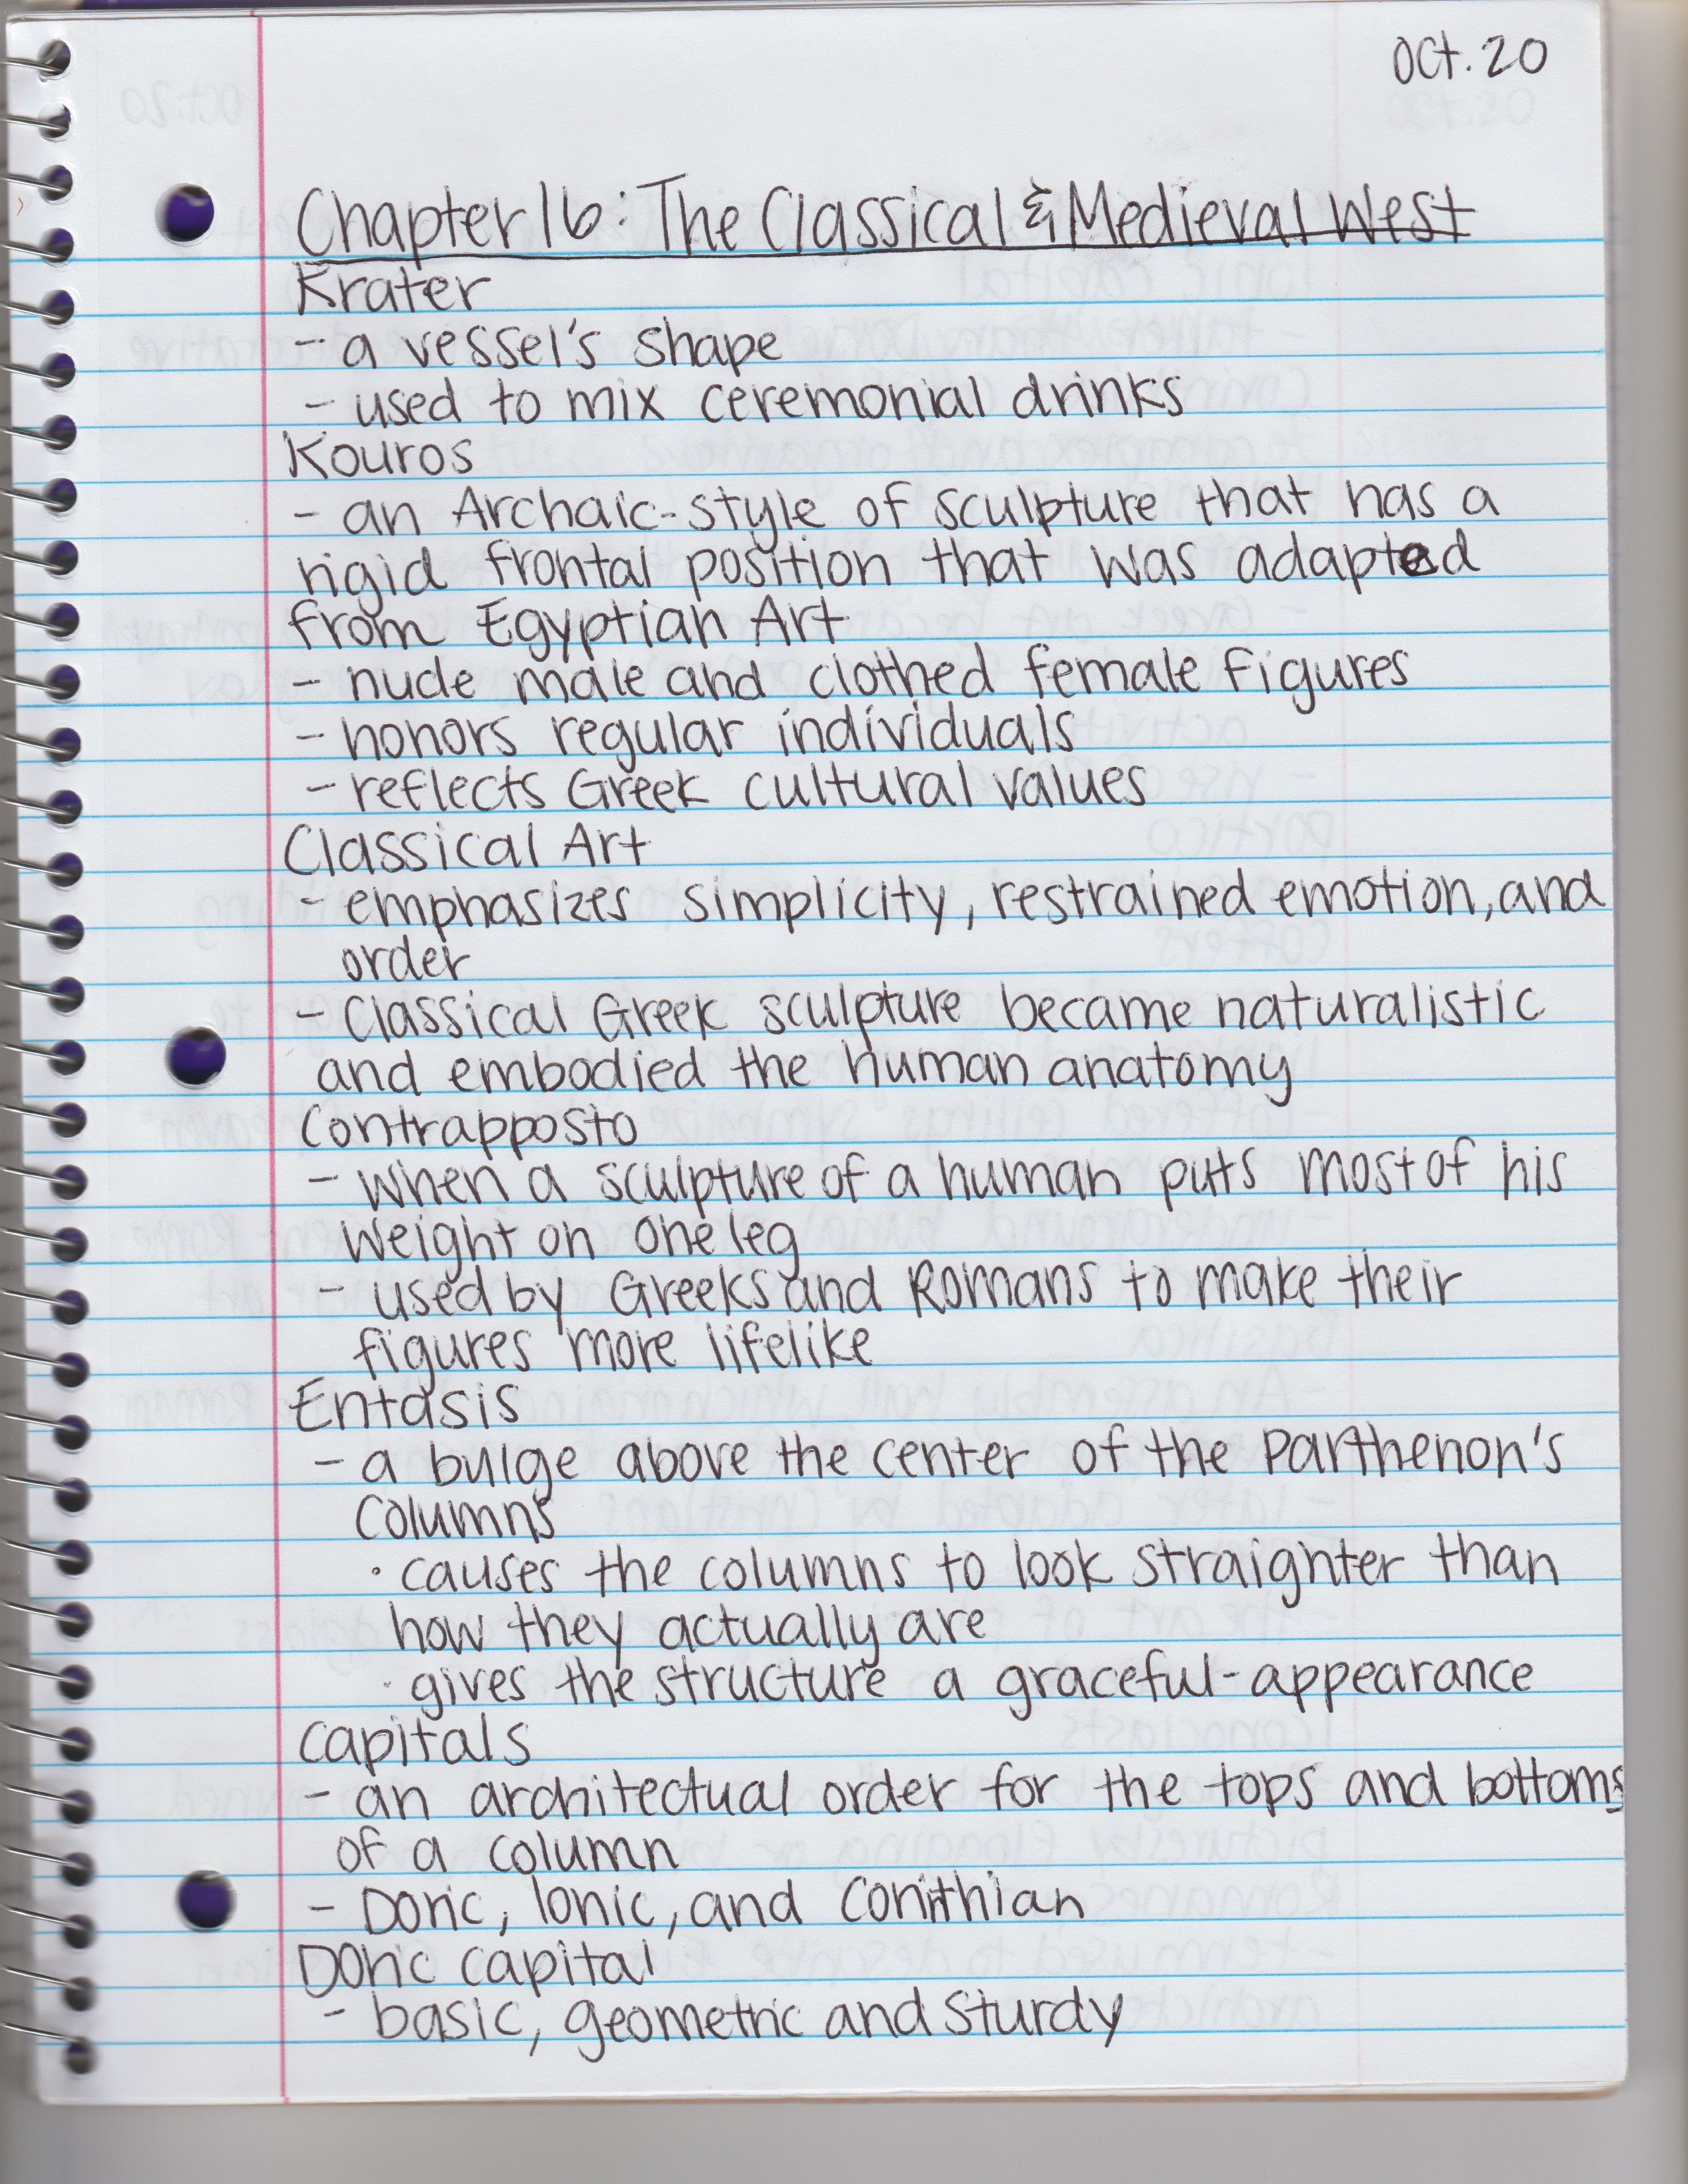 Oct. 20
Chapter 16: The Classical & Medieval West
Krater
- a vessel's shape
- used to mix ceremonial drinks
Kouros
- an Archaic-style of sculpture that has a
rigid frontal position that was adapted
from Egyptian Art
- nude male and clothed female figures
- honors regular individuals
- reflects Greek cultural values
Classical Art
- emphasizes simplicity, restrained emotion, and
order
- Classical Greek sculpture became naturalistic
and embodied the human anatomy
Contrapposto
- when a sculpture of a human puts most of his
weight on one leg
- used by Greeks and Romans to make their
figures more lifelike
Entasis
- a bulge above the center of the Parthenon's
columns
· causes the columns to look straighter than
how they actually are
· gives the structure a graceful-appearance
Capitals
- an architectual order for the tops and bottoms
of a column
- Doric, Ionic, and Corinthian
Doric capital
- basic, geometric and sturdy